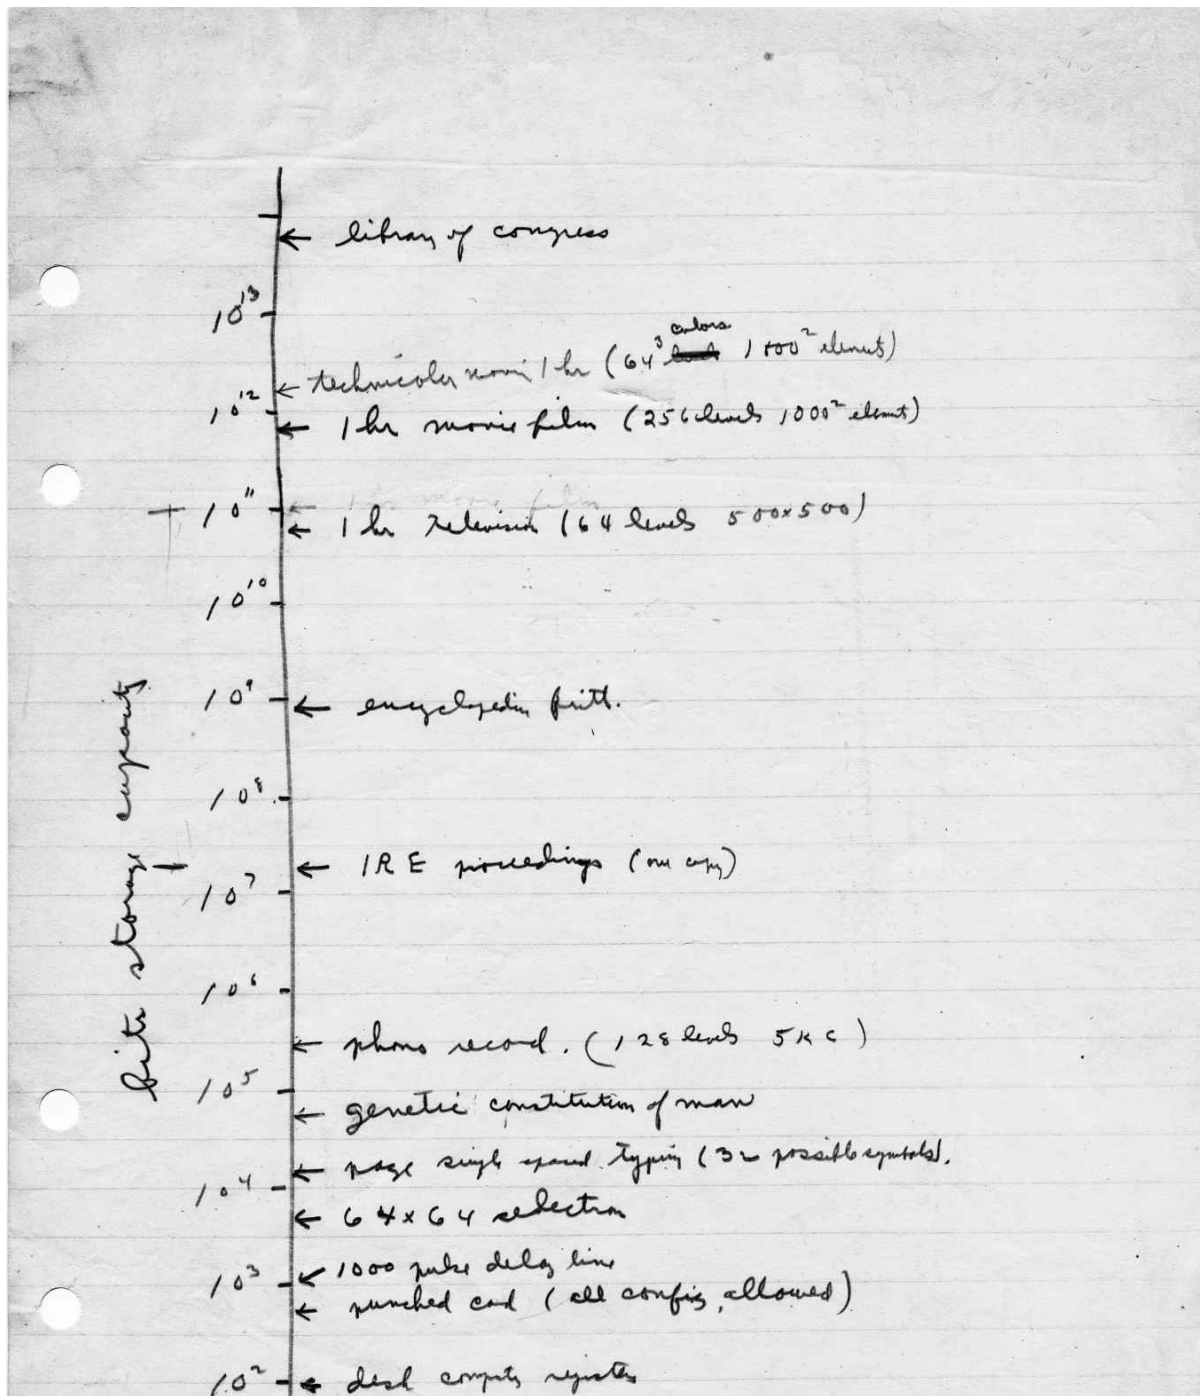 ← library of congress
10^13
colors
← technicolor movie 1 hr (64^3 1000^2 elements)
10^12
← 1 hr movie film (256 levels 1000^2 elements)
10^11 ← 1 hr movie film
← 1 hr television (64 levels 500x500)
10^10
10^9 ← encyclopedia britt.
10^8
← IRE proceedings (one copy)
10^7
10^6
← phono record. (128 levels 5KC)
10^5
← genetic constitution of man
← page single spaced typing (32 possible symbols).
10^4
← 64x64 selection
10^3 ← 1000 pulse delay line
← punched card (all config. allowed)
10^2 ← desk computer register
bits storage capacity